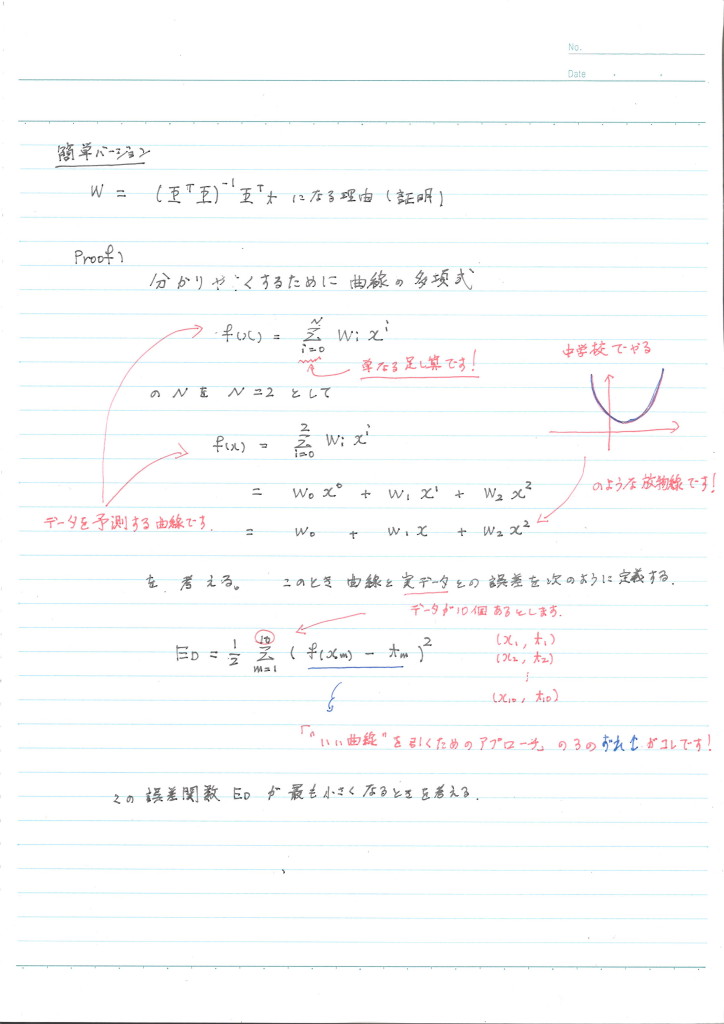 No.
Date
簡単バージョン
W = (Φ^T Φ)^-1 Φ^T t になる理由(証明)
Proof)
分かりやすくするために 曲線の多項式
f(x) = Σ_{i=0}^{N} Wi x^i
単なる足し算です!
中学校でやる
の N を N=2 として
f(x) = Σ_{i=0}^{2} Wi x^i
= W0 x^0 + W1 x^1 + W2 x^2
のような放物線です!
データを予測する曲線です.
= W0 + W1 x + W2 x^2
を 考える。 このとき 曲線と実データとの誤差を次のように定義する.
データが10個あるとします.
ED = 1/2 Σ_{m=1}^{10} ( f(xm) - tm )^2
(x1, t1)
(x2, t2)
⋮
(x10, t10)
「"いい曲線"を引くためのアプローチ」の3のずれ↕がコレです!
この誤差関数 ED が 最も小さくなるときを考える.